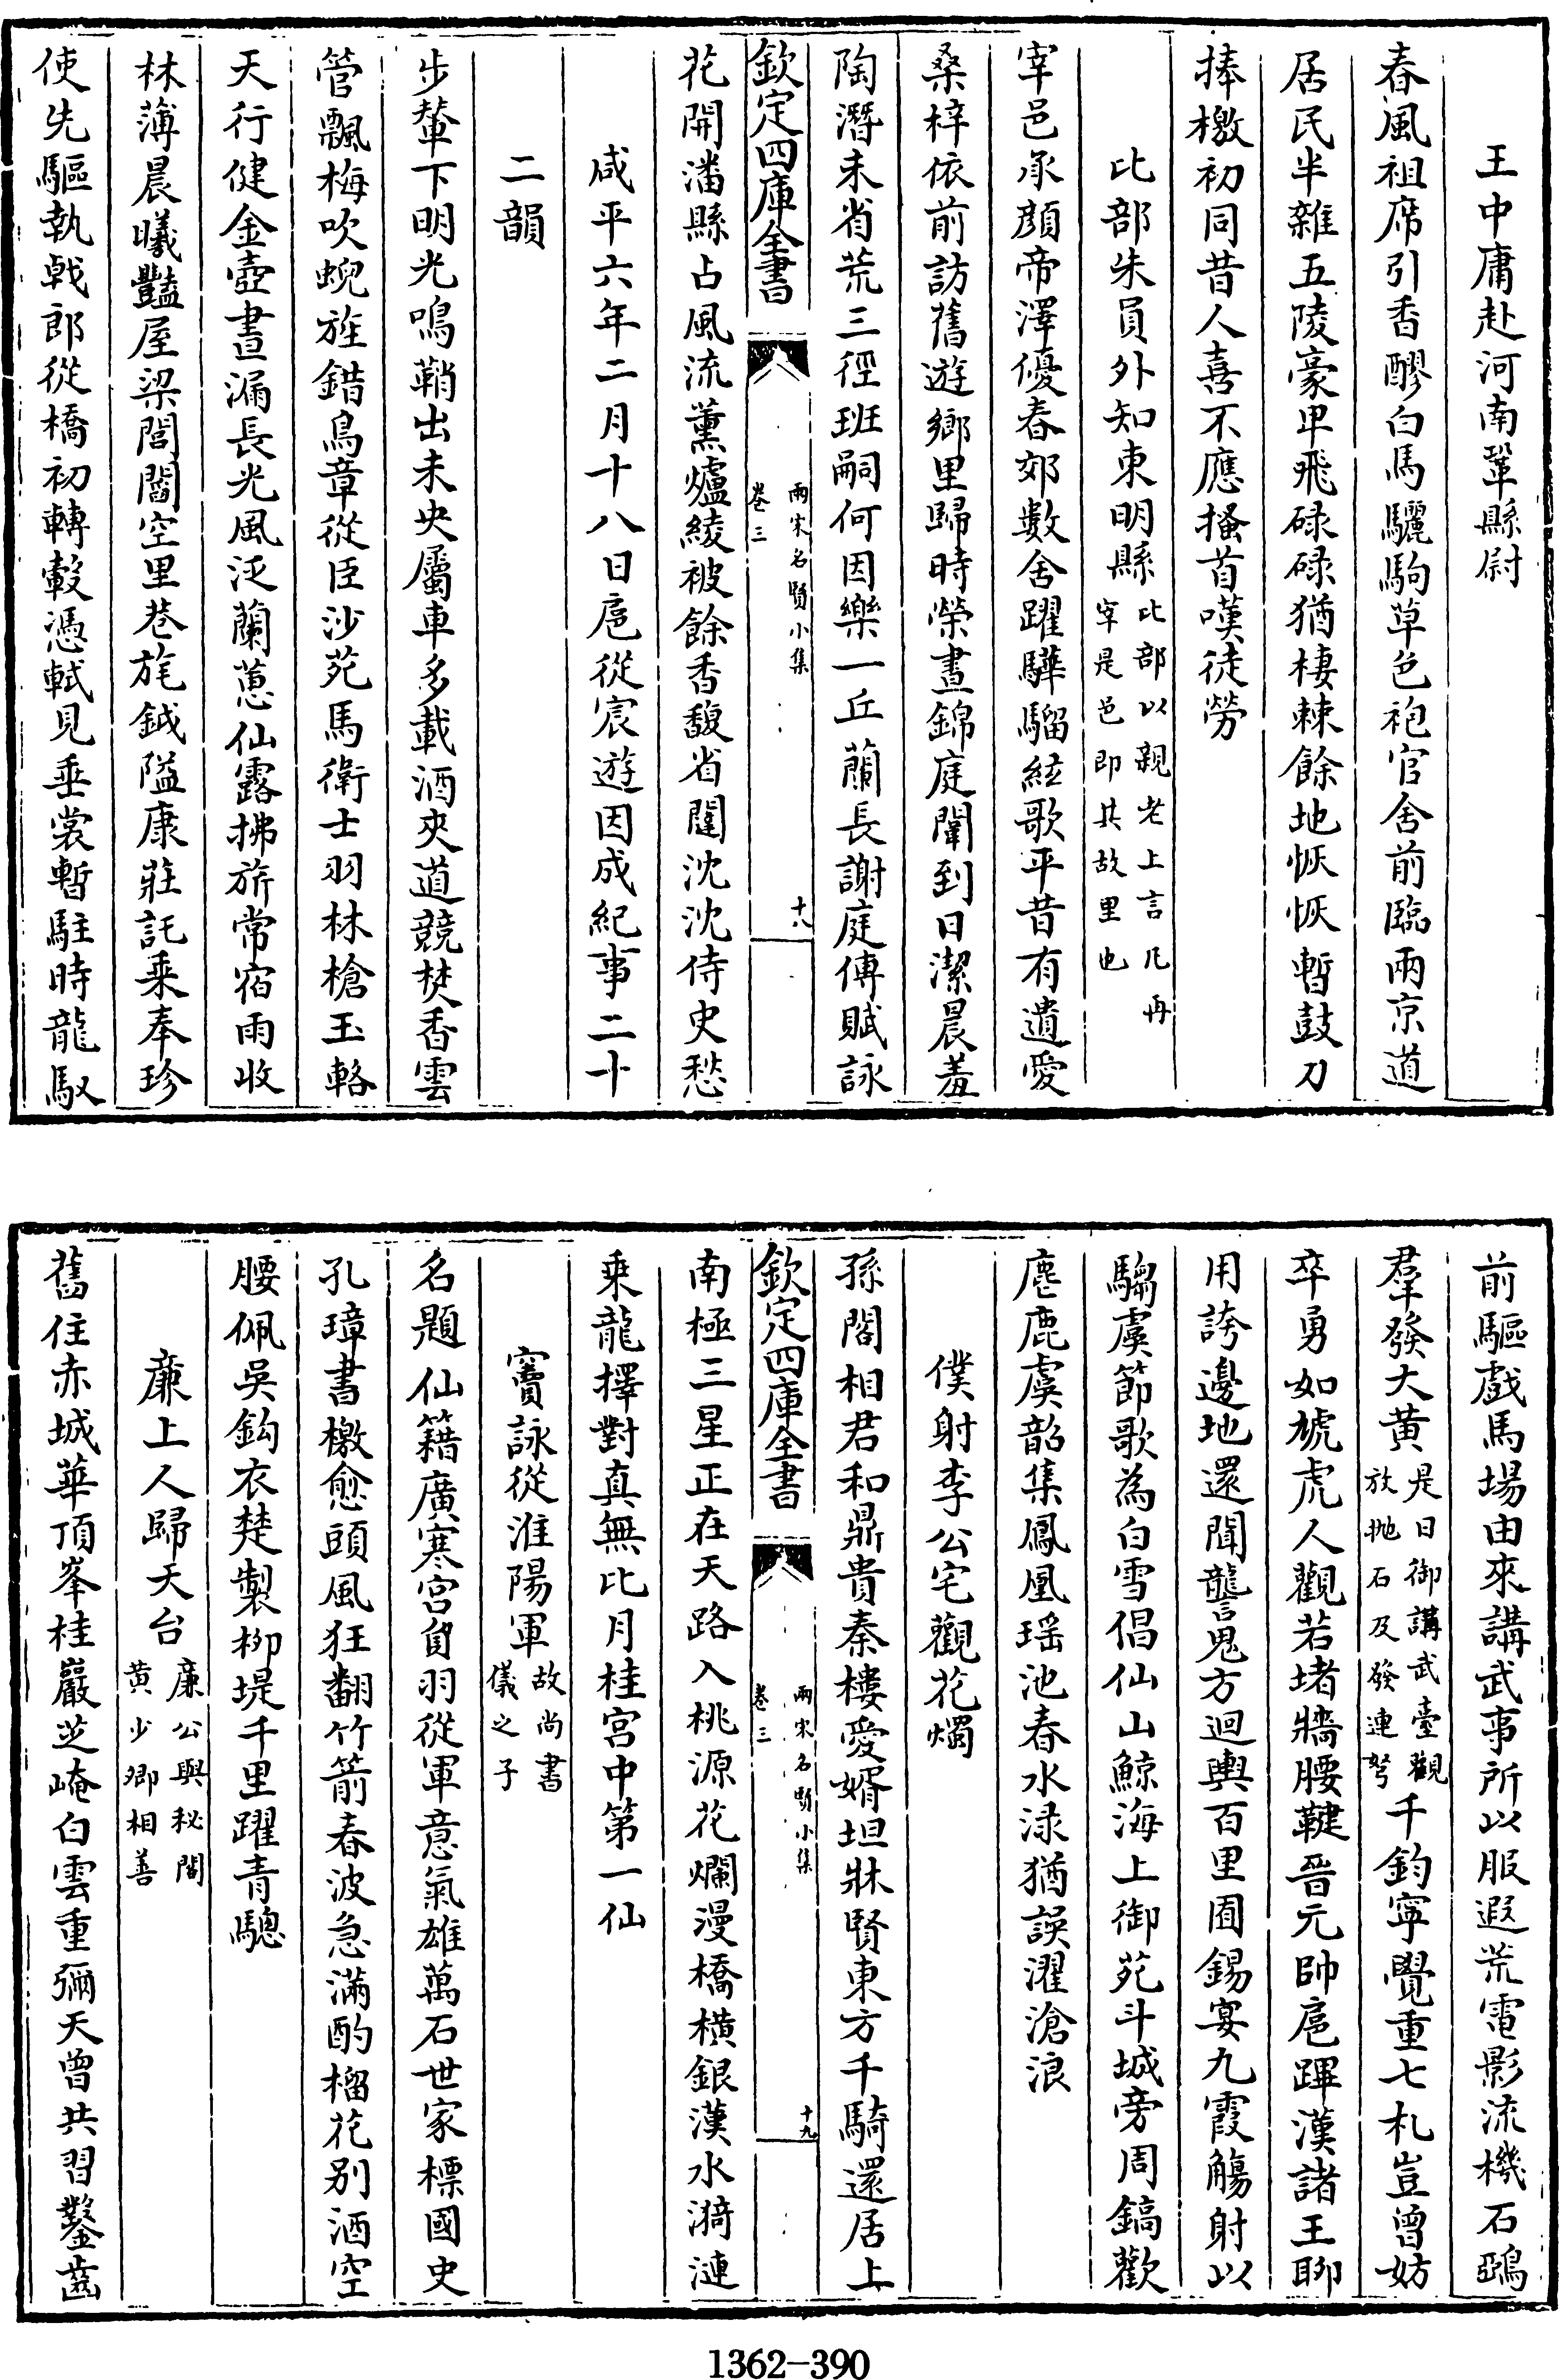 王中庸赴河南鞏縣尉
春風祖席引香醪白馬驪駒草色袍官舍前臨兩京道
居民半雜五陵豪卑飛碌碌猶棲棘餘地恢恢暫鼓刀
捧檄初同昔人喜不應搔首嘆徒勞
比部朱員外知東明縣比部以親老上言凡再宰是邑即其故里也
宰邑承顏帝澤優春郊數舍躍驊騮絃歌平昔有遺愛
桑梓依前訪舊遊鄉里歸時榮晝錦庭闈到日潔晨羞
陶潛未省荒三徑班嗣何因樂一丘蘭長謝庭傳賦詠
欽定四庫全書
兩宋名賢小集
卷三
十八
花開潘縣占風流薰爐綾被餘香馥省闥沈沈侍史愁
咸平六年二月十八日扈從宸遊因成紀事二十
二韻
步輦下明光鳴鞘出未央屬車多載酒夾道競焚香雲
管飄梅吹蜺旌錯鳥章從臣沙苑馬衛士羽林槍玉輅
天行健金壺晝漏長光風泛蘭蕙仙露拂旂常宿雨收
林薄晨曦豔屋梁閭閻空里巷旄鉞隘康莊託乘奉珍
使先驅執戟郎從橋初轉轂憑軾見垂裳暫駐時龍馭
前驅戲馬場由來講武事所以服遐荒電影流機石鵶
羣發大黃是日御講武臺觀放拋石及發連弩千鈞寧覺重七札豈曾妨
卒勇如虓虎人觀若堵牆腰鞬晉元帥扈蹕漢諸王聊
用誇邊地還聞讋鬼方迴輿百里囿錫宴九霞觴射以
騶虞節歌為白雪倡仙山鯨海上御苑斗城旁周鎬歡
麀鹿虞韶集鳳凰瑶池春水渌猶誤濯滄浪
僕射李公宅觀花燭
孫閤相君和鼎貴秦樓愛婿坦牀賢東方千騎還居上
欽定四庫全書
兩宋名賢小集
卷三
十九
南極三星正在天路入桃源花爛漫橋橫銀漢水漪漣
乘龍擇對真無比月桂宮中第一仙
竇詠從淮陽軍故尚書儀之子
名題仙籍廣寒宮負羽從軍意氣雄萬石世家標國史
孔璋書檄愈頭風狂翻竹箭春波急滿酌榴花别酒空
腰佩吳鈎衣楚製栁堤千里躍青驄
廉上人歸天台廉公與秘閣黃少卿相善
舊住赤城華頂峯桂巖芝崦白雲重彌天曾共習鑿齒
1362-390